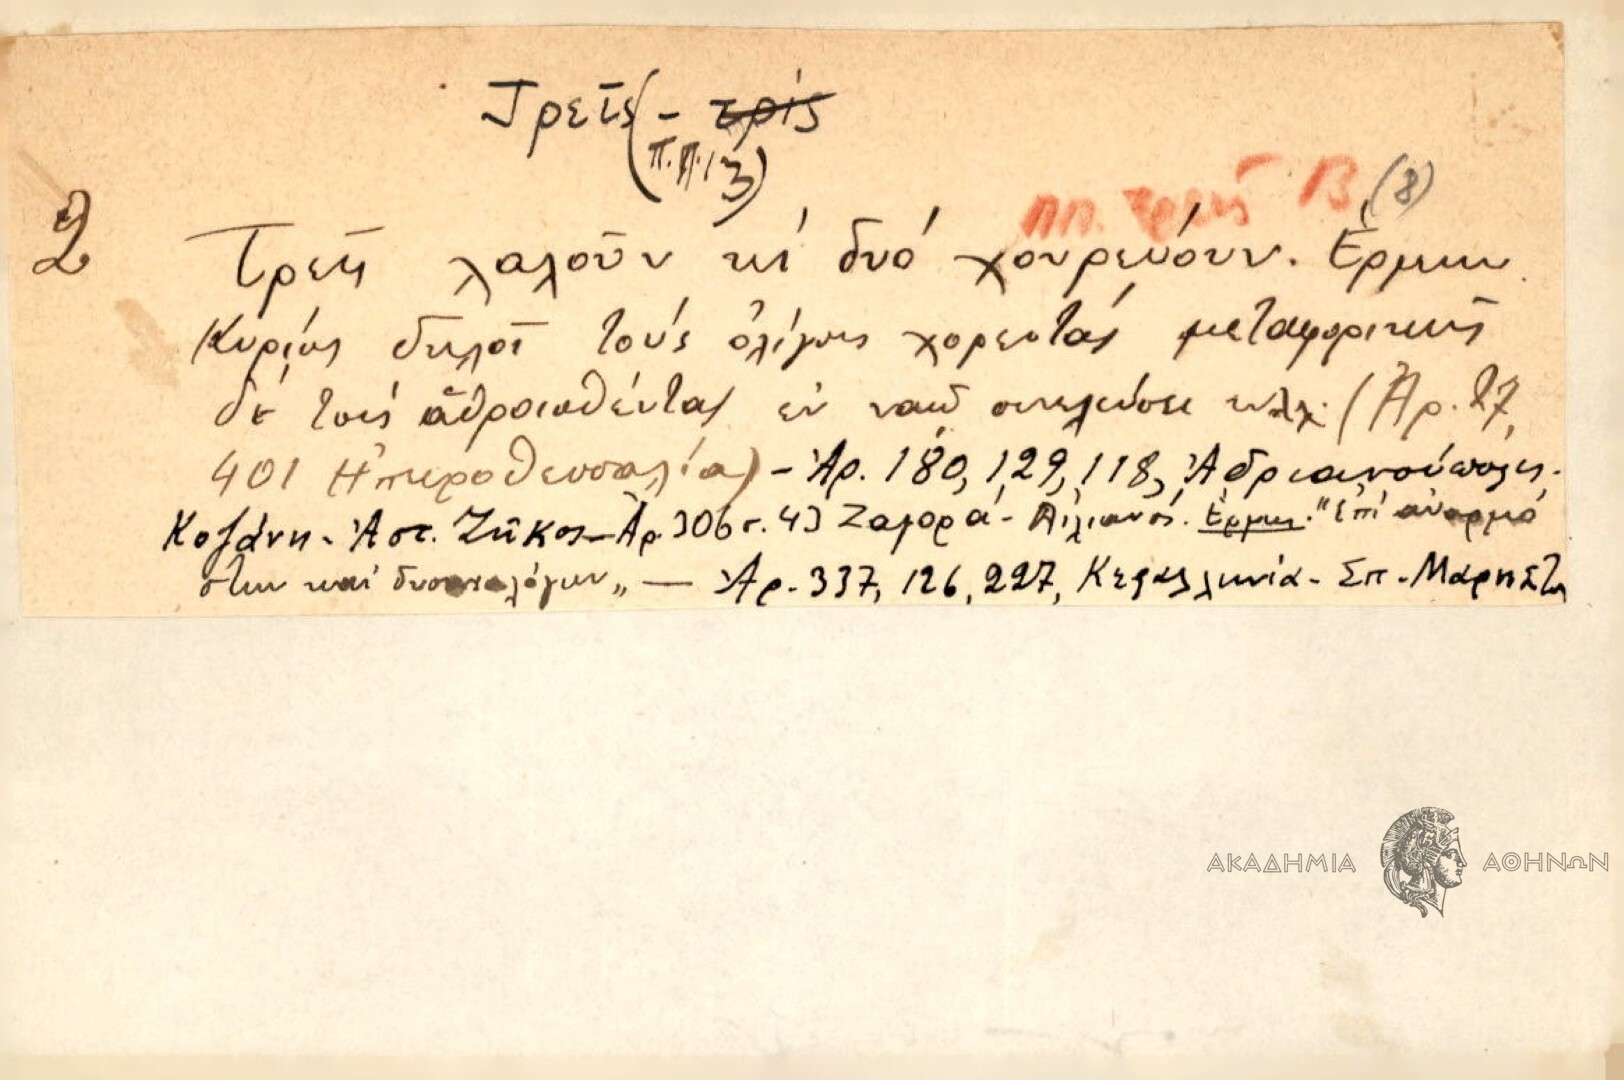 Τρεῖς - τρίς
(π.π. 13)
ππ. τρεῖς 13 (8)
2
Τρεῖς λαλοῦν κὶ δυό χουρεύουν. Ἑρμην.
Κυρίως δηλοῖ τούς ὀλίγους χορευτάς μεταφορικῶς
δέ τούς ἀθροισθέντας ἐν συνελεύσει κλπ. (Ἀρ. 27,
401 Ἠπειροθεσσαλία) - Ἀρ. 180, 129, 118, Ἀδριανούπολις.
Κοζάνη - Ἀστ. Ζῆκος - Ἀρ. 306 σ. 43 Ζαγορά - Αἰλιανός. Ἑρμην. "Ἐπί ἀναρμό
στων καί " — Ἀρ. 337, 126, 227, Κεφαλληνία - Σπ. Μαρινᾶτος
ΑΚΑΔΗΜΙΑ ΑΘΗΝΩΝ